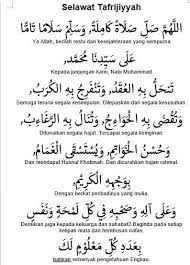 Selawat Tafrijiyyah
اَللّٰهُمَّ صَلِّ صَلَاةً كَامِلَةً، وَسَلِّمْ سَلَامًا تَامًّا
Ya Allah, berilah restu dan kesejahteraan yang sempurna
عَلَى سَيِّدِنَا مُحَمَّدٍ
Kepada junjungan kami, Nabi Muhammad
تَنْحَلُّ بِهِ الْعُقَدُ، وَتَنْفَرِجُ بِهِ الْكُرَبُ,
Semoga terurai segala kesimpulan. Dilepaskan dari segala kesusahan.
وَتُقْضَى بِهِ الْحَوَائِجُ، وَتُنَالُ بِهِ الرَّغَائِبُ,
Ditunaikan segala hajat. Tercapai segala keinginan.
وَحُسْنُ الْخَوَاتِمِ، وَيُسْتَسْقَى الْغَمَامُ
Dan mendapat Husnul Khotimah. Dan dicurahkan hujan rahmat
بِوَجْهِهِ الْكَرِيْمِ,
Dengan berkat peribadinya yang mulia.
وَعَلَى آلِهِ وَصَحْبِهِ فِي كُلِّ لَمْحَةٍ وَنَفَسٍ
Demikian juga kepada keluarga dan sahabat? Baginda pada setiap
kelipan mata dan hembusan nafas,
بِعَدَدِ كُلِّ مَعْلُوْمٍ لَكَ
bahkan sebanyak pengetahuan Engkau.